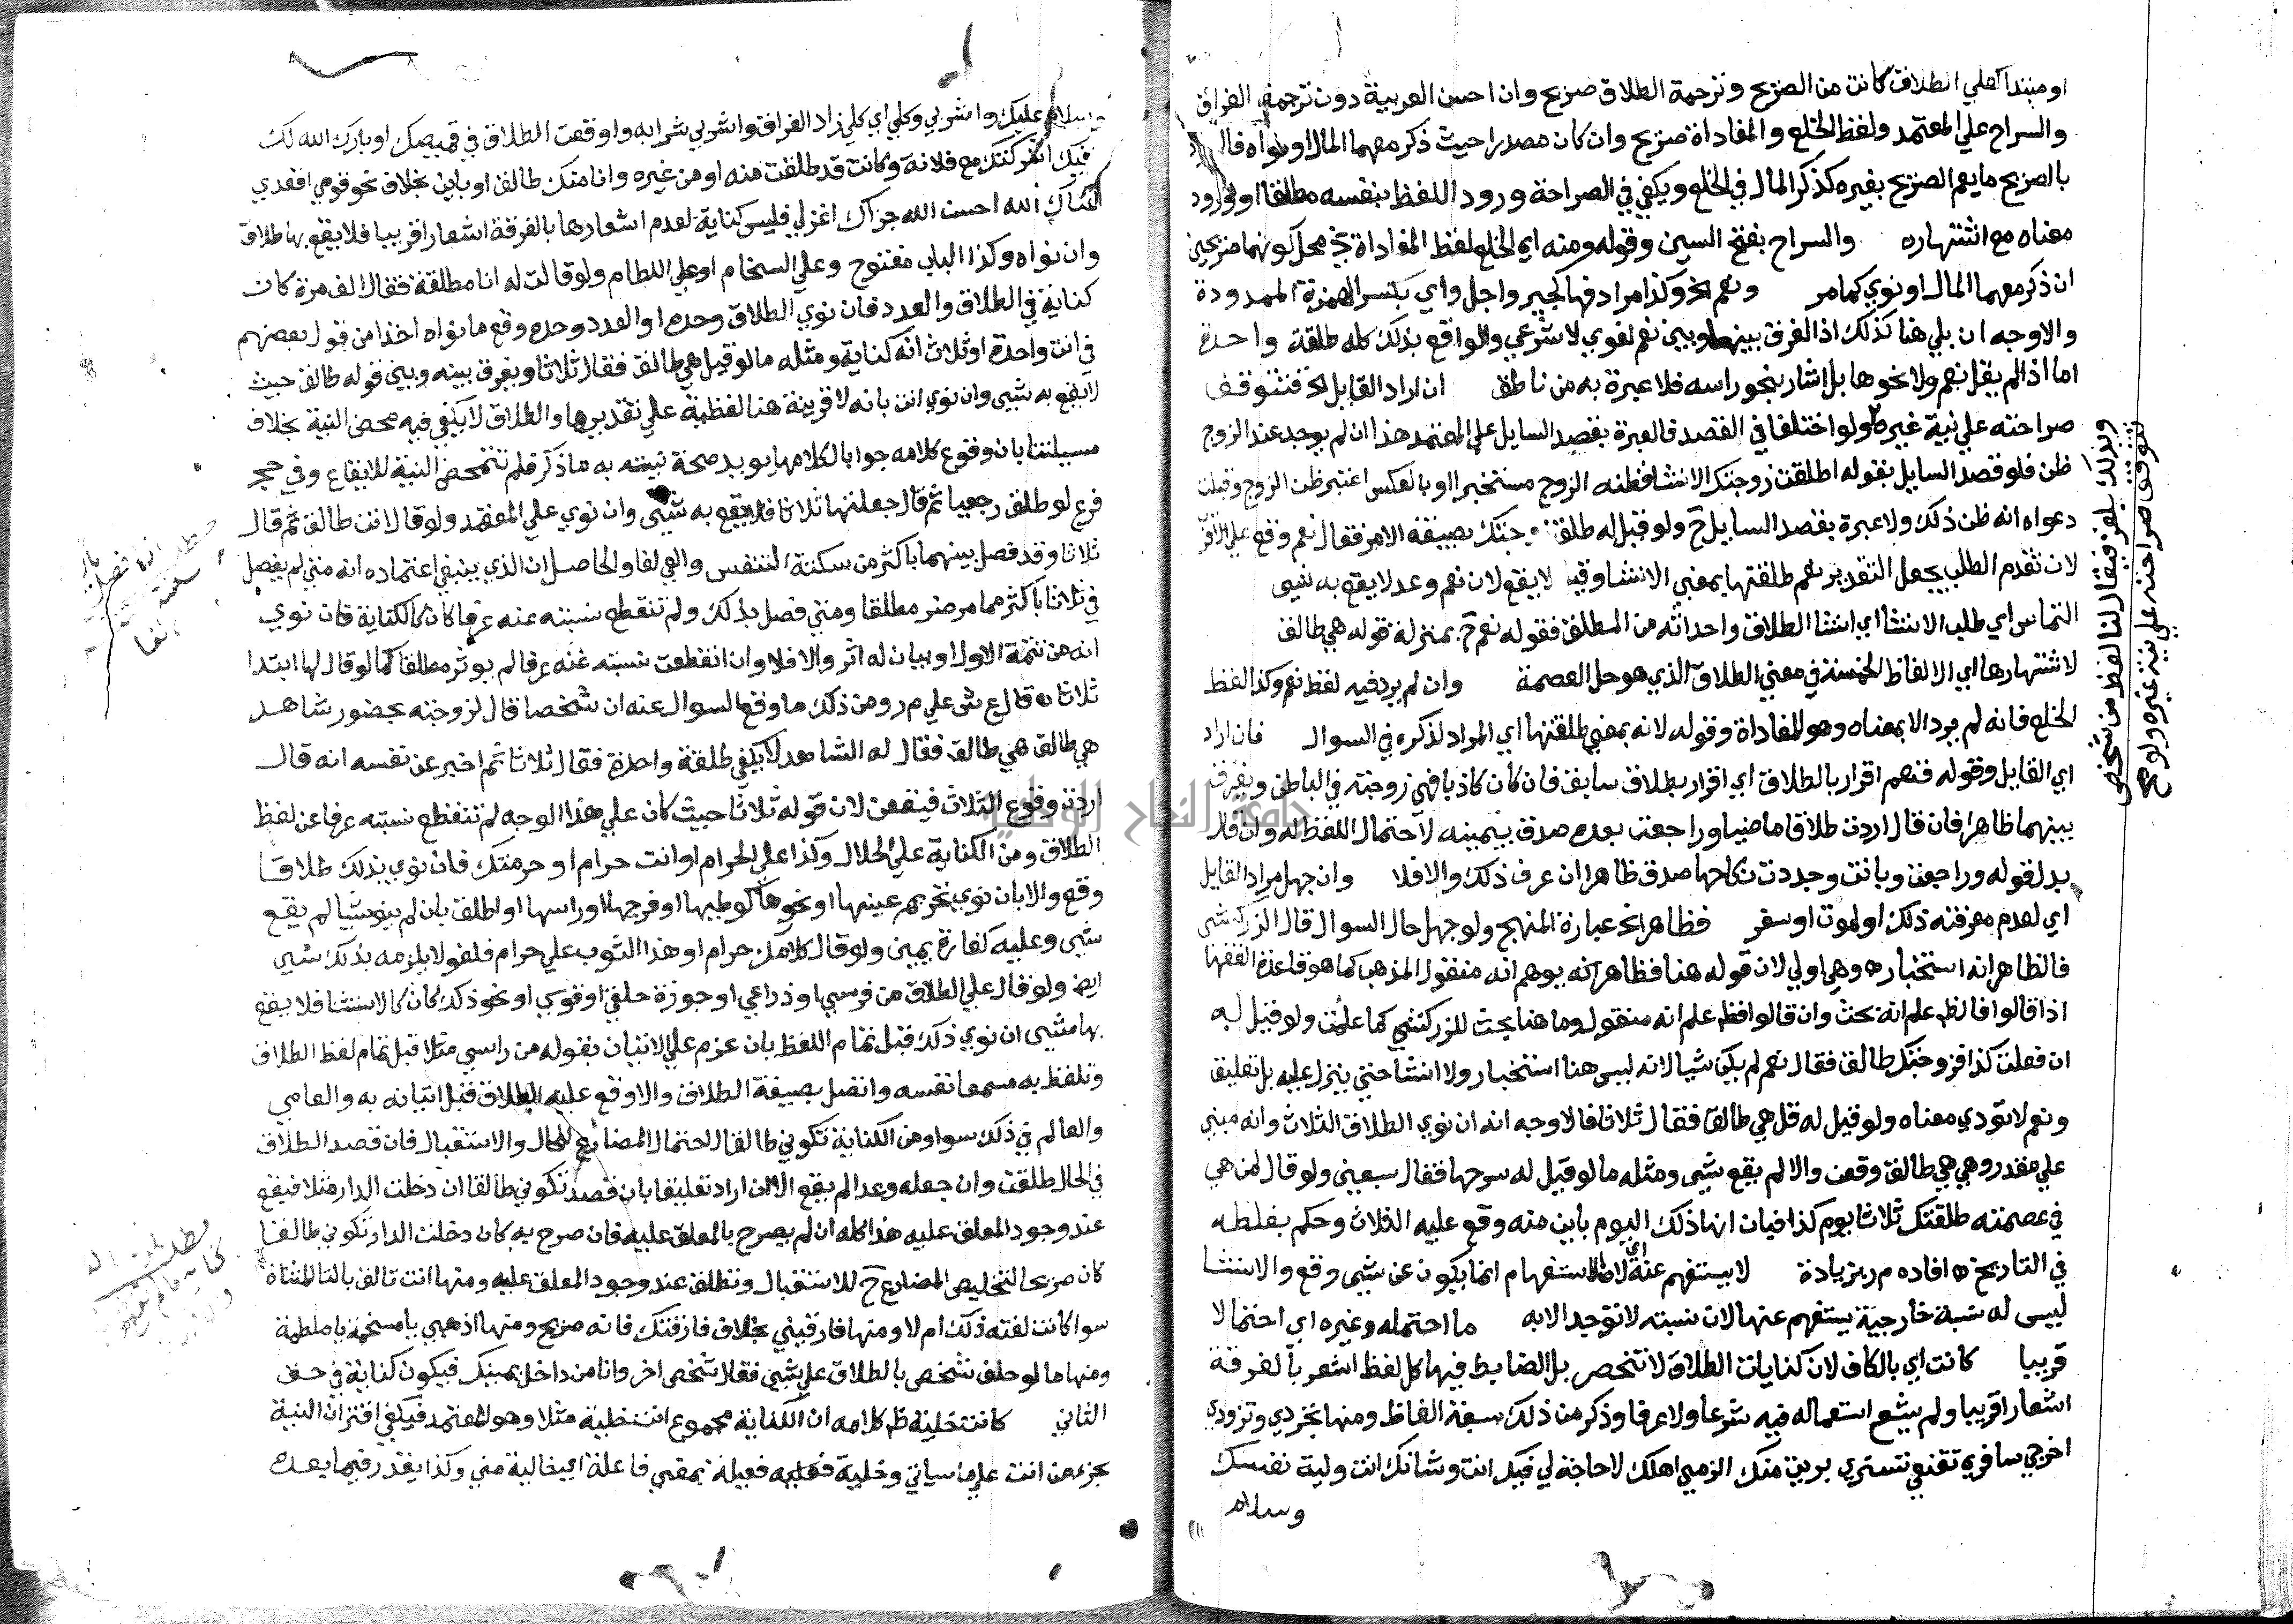 او مبتدا كعلي الطلاق كانت من الصريح وترجمة الطلاق صريح وان احسن العربية دون ترجمة الفراق
والسراح علي المعتمد ولفظ الخلع والمفاداة صريح وان كان مصدرا حيث ذكر معهما المال او نواه فال
بالصريح ما يعم الصريح بغيره كذكر المال في الخلع ويكفي في الصراحة ورود اللفظ بنفسه مطلقا او ورود
معناه مع اشتهاره والسراح بفتح السين وقوله ومنه اي الخلع لفظ المفاداة محل كونهما صريحين
ان ذكر معهما المال او نوي كما مر ونعم الخ وكذا مرادفها كجير واجل واي بكسر الهمزة الممدودة
والاوجه ان بلي هنا كذلك اذ الفرق بينها وبين نعم لغوي لا شرعي والواقع بذلك كله طلقة واحدة
اما اذا لم يقل نعم ولا نحوها بل اشار بنحو راسه فلا عبرة به من ناطق ان اراد القايل الخ فتتوقف
صراحته علي نية غيره ولو اختلفا في القصد فالعبرة بقصد السايل علي المعتمد هذا ان لم يوجد عند الزوج
ظن فلو قصد السايل بقوله اطلقت زوجتك الانشا فظنه الزوج مستخبرا او بالعكس اعتبر ظن الزوج وقبلت
دعواه انه ظن ذلك ولا عبرة بقصد السايل ح ولو قيل له طلق زوجتك بصيغة الامر فقال نعم وقع علي الاقرب
لان تقدم الطلب يجعل التقدير نعم طلقتها بمعني الانشا وقيل لا يقع لان نعم وعد لا يقع به شيي
التماس اي طلب الانشا اي انشا الطلاق واحداثه من المطلق فقوله نعم ح بمنزلة قوله هي طالق
لاشتهارها اي الالفاظ الخمسة في معني الطلاق الذي هو حل العصمة وان لم يرد فيه لفظ نعم وكذا لفظ
الخلع فانه لم يرد الا بمعناه وهو المفاداة وقوله لانه بمعني طلقتها اي المراد لذكره في السوال فان اراد
اي القايل وقوله فنعم اقرار بالطلاق اي اقرار بطلاق سابق فان كان كاذبا فهي زوجته في الباطن ويفرق
بينهما ظاهرا فان قال اردت طلاقا ماضيا وراجعت بعده صدق بيمينه لاحتمال اللفظ له وان قال
بدل قوله وراجعت وبانت وجددت نكاحها صدق ظاهرا ان عرف ذلك والا فلا وان جهل مراد القايل
اي لعدم معرفته ذلك او لموت او سفر فظاهر الخ عبارة المنهج ولو جهل حال السوال قال الزركشي
فالظاهر انه استخبار ه وهي اولي لان قوله هنا فظاهر انه يوهم انه منقول المذهب كما هو قاعدة الفقها
اذا قالوا فالظ علم انه بحث وان قالوا فظ علم انه منقول وما هنا بحث للزركشي كما علمت ولو قيل له
ان فعلت كذا فزوجتك طالق فقال نعم لم يكن شيا لانه ليس هنا استخبار ولا انشا حتي ينزل عليه بل تعليق
ونعم لا تودي معناه ولو قيل له قل هي طالق فقال ثلاثا فالاوجه انه ان نوي الطلاق الثلاث وانه مبني
علي مقدر وهي هي طالق وقعن والا لم يقع شيي ومثله ما لو قيل له سرحها فقال سبعين ولو قال لمن هي
في عصمته طلقتك ثلاثا يوم كذا فبان انها ذلك اليوم باين منه وقع عليه الثلاث وحكم بغلطه
في التاريخ ه افاده م ر بزيادة لا يستفهم عنه اي لان الاستفهام انما يكون عن شيي وقع والانشا
ليس له نسبة خارجية يستفهم عنها لان نسبته لا توجد الا به ما احتمله وغيره اي احتمالا
قريبا كانت اي بالكاف لان كنايات الطلاق لا تنحصر بل الضابط فيها كل لفظ اشعر بالفرقة
اشعارا قريبا ولم يشع استعماله فيه شرعا ولا عرفا وذكر من ذلك سبعة الفاظ ومنها تجردي وتزودي
اخرجي سافري تقنعي تستري بريت منك الزمي اهلك لا حاجة لي فيك انت وشانك انت ولية نفسك
وسلام
وبذلك يلغز فيقال لنا لفظ من شخص
تتوقف صراحته علي نية غيره ولو صح
وسلام عليك واشربي وكلي اي كلي زاد الفراق واشربي شرابه واوقعت الطلاق في قميصك او بارك الله لك
فيك اشركتك مع فلانة وكانت قد طلقت منه او من غيره وانا منك طالق او باين بخلاف نحو قومي اقعدي
اغناك الله احسن الله جزاك اغزلي فليس كناية لعدم اشعارها بالفرقة اشعارا قريبا فلا يقع بها طلاق
وان نواه وكذا الباب مفتوح وعلي السخام او علي اللطام ولو قالت له انا مطلقة فقال الف مرة كان
كناية في الطلاق والعدد فان نوي الطلاق وحده او العدد وحده وقع ما نواه اخذا من قول بعضهم
في انت واحدة او ثلاث انه كناية ومثله ما لو قيل هي طالق فقال ثلاثا ويفرق بينه وبين قوله طالق حيث
لا يقع به شيي وان نوي انت بانه لا قرينة هنا لفظية علي تقديرها والطلاق لا يكفي فيه محض النية بخلاف
مسيلتنا بان وقوع كلامه جوابا لكلامها يويد صحة نيته به ما ذكر فلم تتمحض النية للايقاع وفي حجر
فرع لو طلق رجعيا ثم قال جعلتها ثلاثا فلا يقع به شيي وان نوي علي المعتمد ولو قال انت طالق ثم قال
ثلاثا وقد فصل بينهما باكثر من سكتة التنفس والعي لغا والحاصل ان الذي ينبغي اعتماده انه متي لم يفصل
في ثلاثا باكثر مما مر ضر مطلقا ومتي فصل بذلك ولم تنقطع نسبته عنه عرفا كان كالكناية فان نوي
انه من تتمة الاول او بيان له اثر والا فلا وان انقطعت نسبته عنه عرفا لم يوثر مطلقا كما لو قال لها ابتدا
ثلاثا ه قال ع ش علي م ر ومن ذلك ما وقع السوال عنه ان شخصا قال لزوجته بحضور شاهد
هي طالق هي طالق فقال له الشاهد لا يكفي طلقة واحدة فقال ثلاثا ثم اخبر عن نفسه انه قال
اردت وقوع الثلاث فيقعن لان قوله ثلاثا حيث كان علي هذا الوجه لم تنقطع نسبته عرفا عن لفظ
الطلاق ومن الكناية علي الحلال وكذا علي الحرام او انت حرام او حرمتك فان نوي بذلك طلاقا
وقع والا بان نوي تحريم عينها او نحوها كوطيها او فرجها او راسها او اطلق بان لم ينو شيا لم يقع
شيي وعليه كفارة يمين ولو قال كلامك حرام او هذا الثوب علي حرام فلغو لا يلزمه بذلك شيي
ايضا ولو قال علي الطلاق من فرسي او ذراعي او جوزة حلقي او قوي او نحو ذلك كان كالاستثنا فلا يقع
بها شيي ان نوي ذلك قبل تمام اللفظ بان عزم علي الاتيان بقوله من راسي مثلا قبل تمام لفظ الطلاق
وتلفظ به مسمعا نفسه واتصل بصيغة الطلاق والا وقع عليه الطلاق قبل اتيانه به والعامي
والعالم في ذلك سوا ومن الكناية تكوني طالقا لاحتمال المضارع للحال والاستقبال فان قصد الطلاق
في الحال طلقت وان جعله وعدا لم يقع الا ان اراد تعليقا بان قصد تكوني طالقا ان دخلت الدار مثلا فيقع
عند وجود المعلق عليه هذا كله ان لم يصرح بالمعلق عليه فان صرح به كان دخلت الدار تكوني طالقا
كان صريحا لتخليص المضارع ح للاستقبال وتطلق عند وجود المعلق عليه ومنها انت تالق بالتا المثناة
سوا كانت لغته ذلك ام لا ومنها فارقيني بخلاف فارقتك فانه صريح ومنها اذهبي يا مسخمة يا ملطمة
ومنها ما لو حلف شخص بالطلاق علي شيي فقال شخص اخر وانا من داخل يمينك فيكون كناية في حق
الثاني كانت خلية ظ كلامه ان الكناية مجموع انت خلية مثلا وهو المعتمد فيكفي اقتران النية
بجزء من انت علي ما سياتي وخلية فعيلة بمعني فاعلة اي خالية مني وكذا يقدر فيما بعده
جامعة النجاح الوطنية